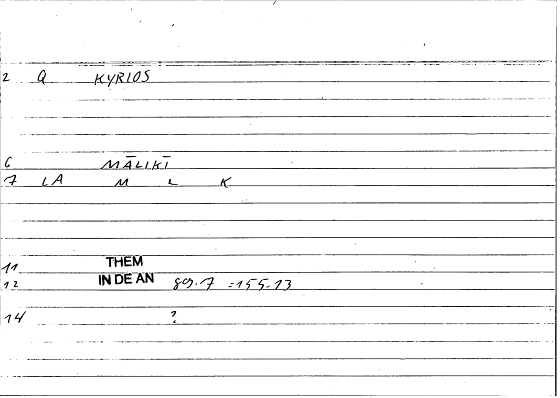 2 Q KYRIOS
6 MĀLIKĪ
7 LA M L K
11 THEM
12 IN DE AN gen.7 =155.13
14 ?